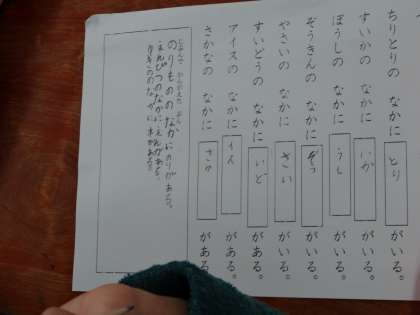 ちりとりの なかに とり がいる。
すいかの なかに いか がいる。
ぼうしの なかに うし がいる。
ぞうきんの なかに ぞう がいる。
やさいの なかに さい がいる。
すいどうの なかに いど がある。
アイスの なかに イス がある。
さかなの なかに さか がある。
のりもののなかにのりがある。
えんぴつのなかにえんがある。
のなかに木がある。